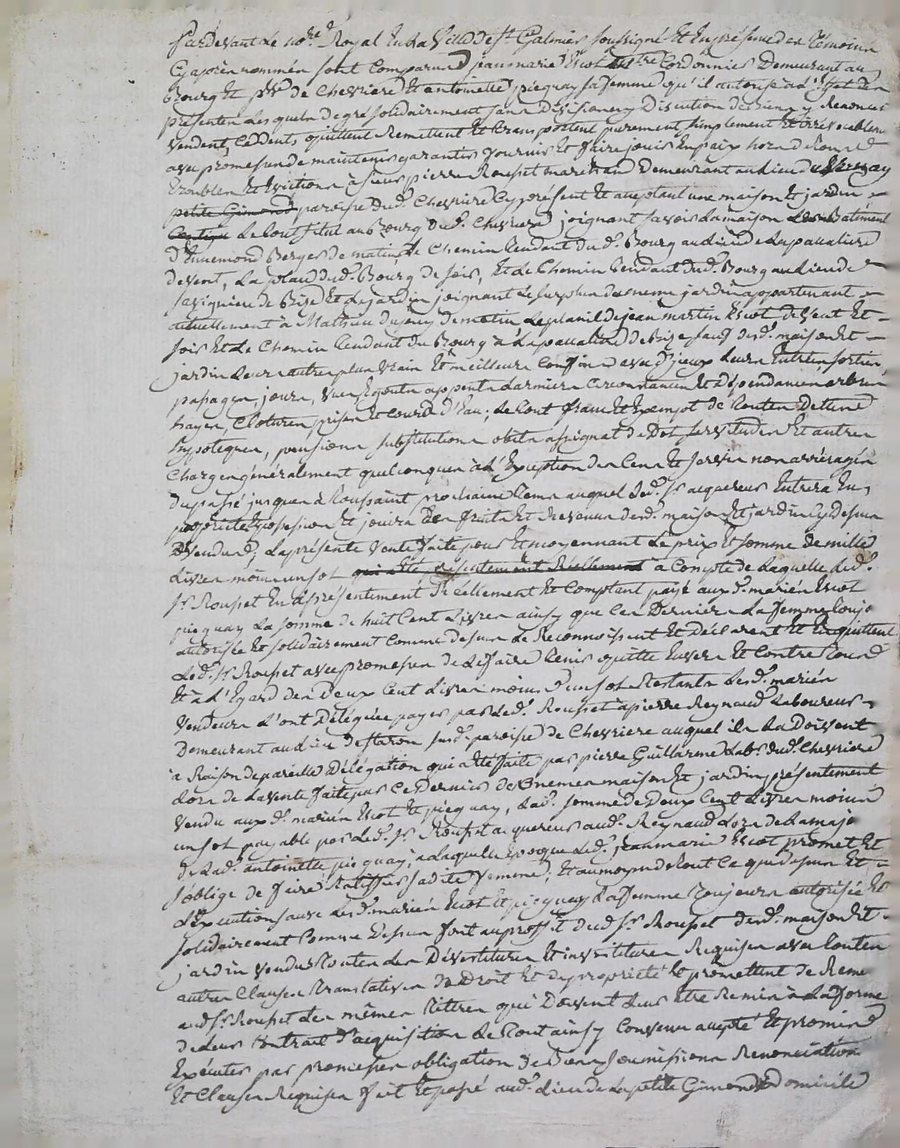 Pardevant Le no.re Royal En La Ville de st. Galmier soussigné Et En présence des témoins
Cy après nommés sont Comparus Jean marie Escot cordonnier Demeurant au
Bourg Et psse. de Chevriere Et antoinette picquay sa femme qu'il autorise à L'Effet des
présentes Lesquels de gré solidairement sans Division ny Discution de biens y Renonçant
vendent, Cèdent, quittent Remettent Et transportent purement, simplement Et irrévocablement
avec promesses de maintenir garantir fournir Et faire jouir En paix hors de Rome
troubles Et Evictions à sieur pierre Rousset marchand Demeurant au Lieu du
petite Gimond paroisse dud. Chevriere Cy présent Et acceptant une maison Et jardin
Le tout situé au Bourg dud. Chevriere, joignant savoir La maison Les Batiments
d'Ennemond Berger de matin, Le Chemin tendant dud. Bourg au Lieu de La
de vent, La place dud. Bourg de soir, Et Le Chemin tendant dud. Bourg au Lieu de
de Bize Et Le jardin joignant Le surplus du meme jardin appartenant
actuellement à Mathieu de matin de jean martin Escot de vent Et
soir Et Le Chemin tendant du Bourg à de Bize sauf desd. maison Et
jardin Leurs autres plus vrais Et meilleurs Confins avec D'iceux Leurs Entrées, sorties,
passages, jours, vues, Egouts appentes Larmiers Circonstances Et Dépendances arbres
hayes, Clotures, prises Et cours D'Eau; Le tout franc Et Exempt de toutes Dettes
hypoteques, pensions substitutions obits assignat de Dot servitudes Et autres
Charges généralement quelconques à L'Exception des Cens Et servis non arréragés
du passé jusques à toussaint prochaine tems auquel Led. sr. acquereur Entrera En
propriété possession Et jouira des fruits Et Revenus desd. maison Et jardin Cy dessus
vendus; La présente vente faite pour Et moyennant Le prix Et somme de mille
Livres moins un sol qui a été présentement Réellement a Compte de Laquelle Led.
sr. Rousset En a présentement Réellement Et Comptant payé auxd. mariés Escot
picquay La somme de huit Cent Livres ainsy que Ces Derniers La femme toujo
autorisée Et solidairement Comme dessus Le Reconnoissent Et Déclarent Et En quittent
Led. sr. Rousset avec promesses de Le faire tenir quitte Envers Et Contre tous
Et à L'Egard des Deux Cent Livres moins D'un sol Restants Lesd. mariés
Vendeurs L'ont Déléguée payer par Led. Rousset a pierre Reynaud Laboureur
Demeurant au Lieu de susd. paroisse de Chevriere auquel ils La Doivent
à Raison de pareille Délégation qui a été faite par pierre Guillarme Labr. dud. Chevriere
Lors de La vente faite par Ce Dernier des memes maison Et jardin présentement
vendu auxd. mariés Escot Et picquay, Lad. somme de Deux Cent Livres moins
un sol payable par Led. sr. Rousset acquereur aud. Reynaud Lors de La majo
de Lad. antoinette picquay, a Laquelle Epoque Led. jean marie Escot promet Et
s'oblige de faire Ratiffier sadite femme; Et au moyen de tout Ce que dessus Et
L'Execution sauve Lesd. mariés Escot Et picquay La femme toujours autorisée Et
solidairement Comme dessus font au proffit dud. sr. Rousset desd. maison Et
jardin vendus toutes Les Dévestitures Et investitures Requises avec toutes
autres Clauses translatives de Droit Et de propriété Et promettent de Reme
aud. sr. Rousset Les mêmes titres qui Doivent Leur être Remis à La forme
de Leur Contrat d'acquisition Le tout ainsy Convenu accepté Et promis
Exécuter par promesses obligation de Biens soumissions Renonciations
Et Clauses Requises fait Et passé aud. Lieu de La petite Gimond Domicile